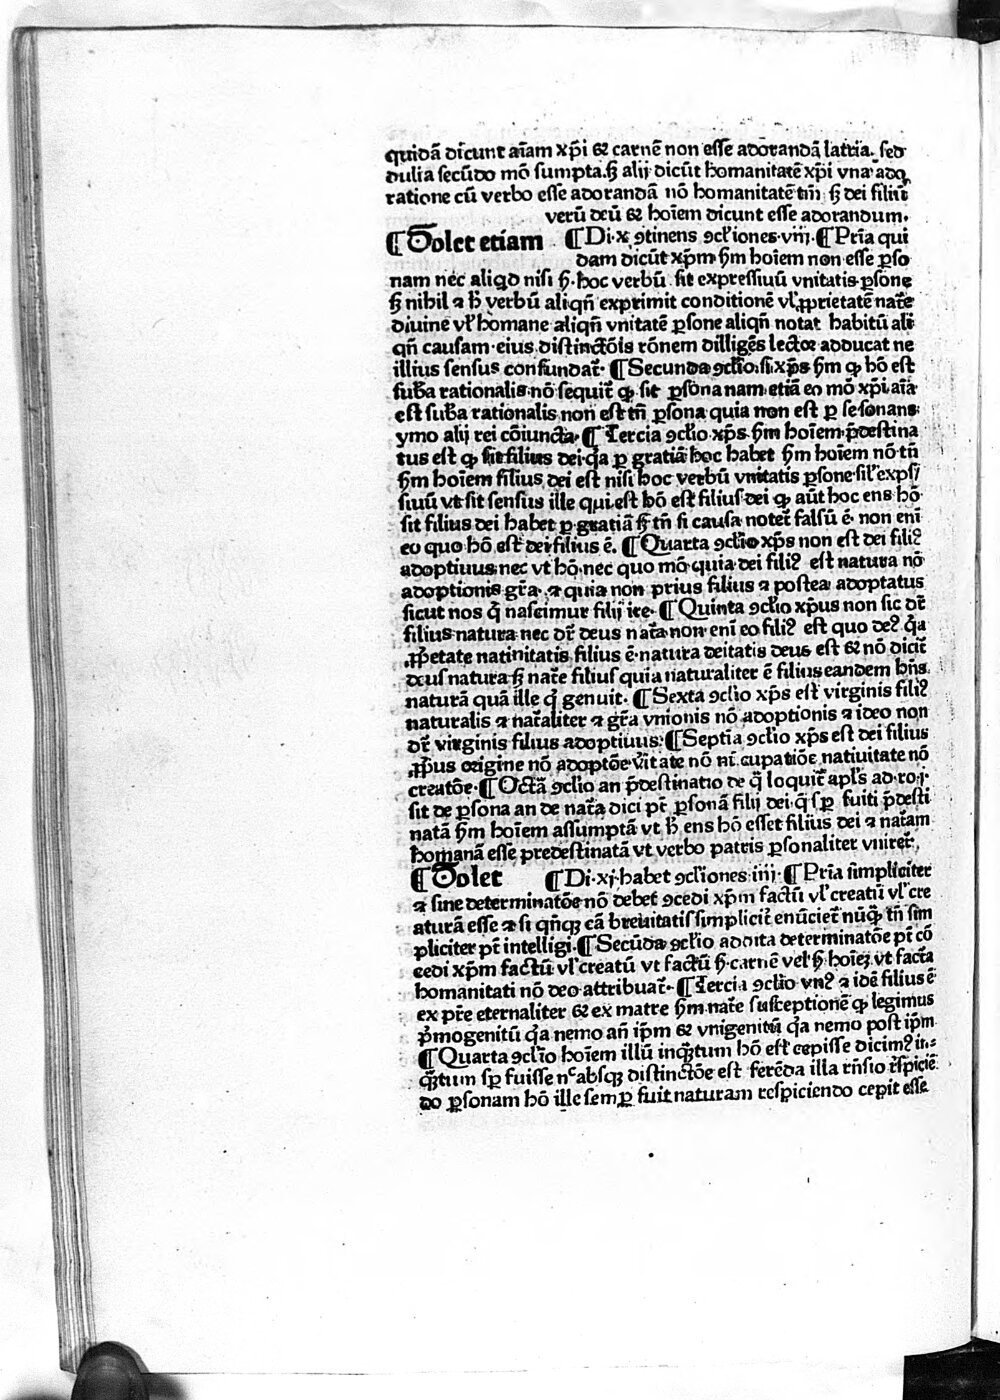 quidā dicunt aīam xp̄i & carnē non esse adorandā latria. sed
dulia secūdo mō sumpta. ꝫ alij dicūt humanitatē xp̄i vna ado
ratione cū verbo esse adorandā nō homanitatē tm̄ ꝫ dei filiū
verū deū & hoīem dicunt esse adorandum.
¶ Solet etiam ¶ Di. x. ꝯtinens ꝯcl'iones. viij. ¶ Prīa qui
dam dicūt xp̄m ẜm hoīem non esse ꝑso
nam nec aliqd nisi ẜ. hoc verbū sit expressiuū vnitatis ꝑsone
ꝫ nihil ⁊ ħ verbū aliqn̄ exprimit conditionē vl' ꝓprietatē nat̄e
diuine vl' homane aliqn̄ vnitatē ꝑsone aliqn̄ notat habitū ali
qn̄ causam. eius distinctōis rōnem dilligēs lector aducat ne
illius sensus confundat̄. ¶ Secunda ꝯcl'io. si xp̄s ẜm ꝙ hō est
sub̄a rationalis. nō sequit̄ ꝙ sit ꝑsona nam etiā eo mō xp̄i aīa
est sub̄a rationalis non est tn̄ ꝑsona quia non est ꝑ se sonans.
ymo alij rei cōiuncta. ¶ Tercia ꝯcl'io xp̄s ẜm hoīem p̄destina
tus est ꝙ sit filius dei. q̄a ꝑ gratiā hoc habet ẜm hoīem nō tn̄
ẜm hoīem filius dei est nisi hoc verbū vnitatis ꝑsone sil' exp̄ssi
siuū vt sit sensus ille qui est hō est filius dei ꝙ aūt hoc ens hō
sit filius dei habet ꝑ gratiā ꝫ tn̄ si causa notet̄ falsū ē. non eni
eo quo hō est dei filius ē. ¶ Quarta ꝯcl'io xp̄s non est dei fili9
adoptiuus. nec vt hō. nec quo mō. quia dei fili9 est natura nō
adoptionis gr̄a. ⁊ quia non prius filius ⁊ postea adoptatus
sicut nos q̄ nascimur filij ire. ¶ Quinta ꝯcl'io xp̄us non sic dr̄
filius natura nec dr̄ deus nat̄a. non eni eo fili9 est quo de9 q̄a
ꝓp̄etate natiuitatis filius ē. natura deitatis deus est & nō dicit̄
deus natura ꝫ nat̄e filius quia naturaliter ē filius eandem hn̄s
naturā quā ille q̄ genuit. ¶ Sexta ꝯcl'io xp̄s est virginis fili9
naturalis ⁊ nat̄aliter ⁊ gr̄a vnionis nō adoptionis ⁊ ideo non
dr̄ virginis filius adoptiuus. ¶ Septīa ꝯcl'io xp̄s est dei filius
ꝓp̄us origine nō adoptōe v̄itate nō nūcupatiōe natiuitate nō
creatōe. ¶ Octā ꝯcl'io an p̄destinatio de q̄ loquit̄ apl's ad ro. j.
sit de ꝑsona an de nat̄a dici pt̄ ꝑsonā filij dei. q̄ sꝑ fuit p̄desti
natā ẜm hoīem assumptā vt ħ ens hō esset filius dei ⁊ nat̄am
homanā esse predestinatā vt verbo patris ꝑsonaliter vniret̄.
¶ Solet ¶ Di. xj. habet ꝯcl'iones iiij. ¶ Prīa simpliciter
⁊ sine determinatōe nō debet ꝯcedi xp̄m factū vl' creatū vl' cre
aturā esse ⁊ si qn̄qꝫ cā breuitatis simplicit̄ enūciet̄ nūq̄ꝫ tn̄ sim
pliciter pt̄ intelligi. ¶ Secūda ꝯcl'io addita determinatōe pt̄ cō
cedi xp̄m factū vl' creatū vt factū ẜ. carnē vel ẜ hoīeꝫ vt facta
homanitati nō deo attribuat̄. ¶ Tercia ꝯcl'io vn9 ⁊ idē filius ē
ex pr̄e eternaliter & ex matre ẜm nat̄e susceptionē ꝙ legimus
p̄mogenitū q̄a nemo an̄ ip̄m & vnigenitū q̄a nemo post ip̄m
¶ Quarta ꝯcl'io hoīem illū inq̄ꝫtum hō est cepisse dicim9 in⸗
q̄ꝫtum sꝑ fuisse nc absqꝫ distinctōe est ferēda illa rn̄sio r̄spiciē
do ꝑsonam hō ille semꝑ fuit naturam respiciendo cepit esse